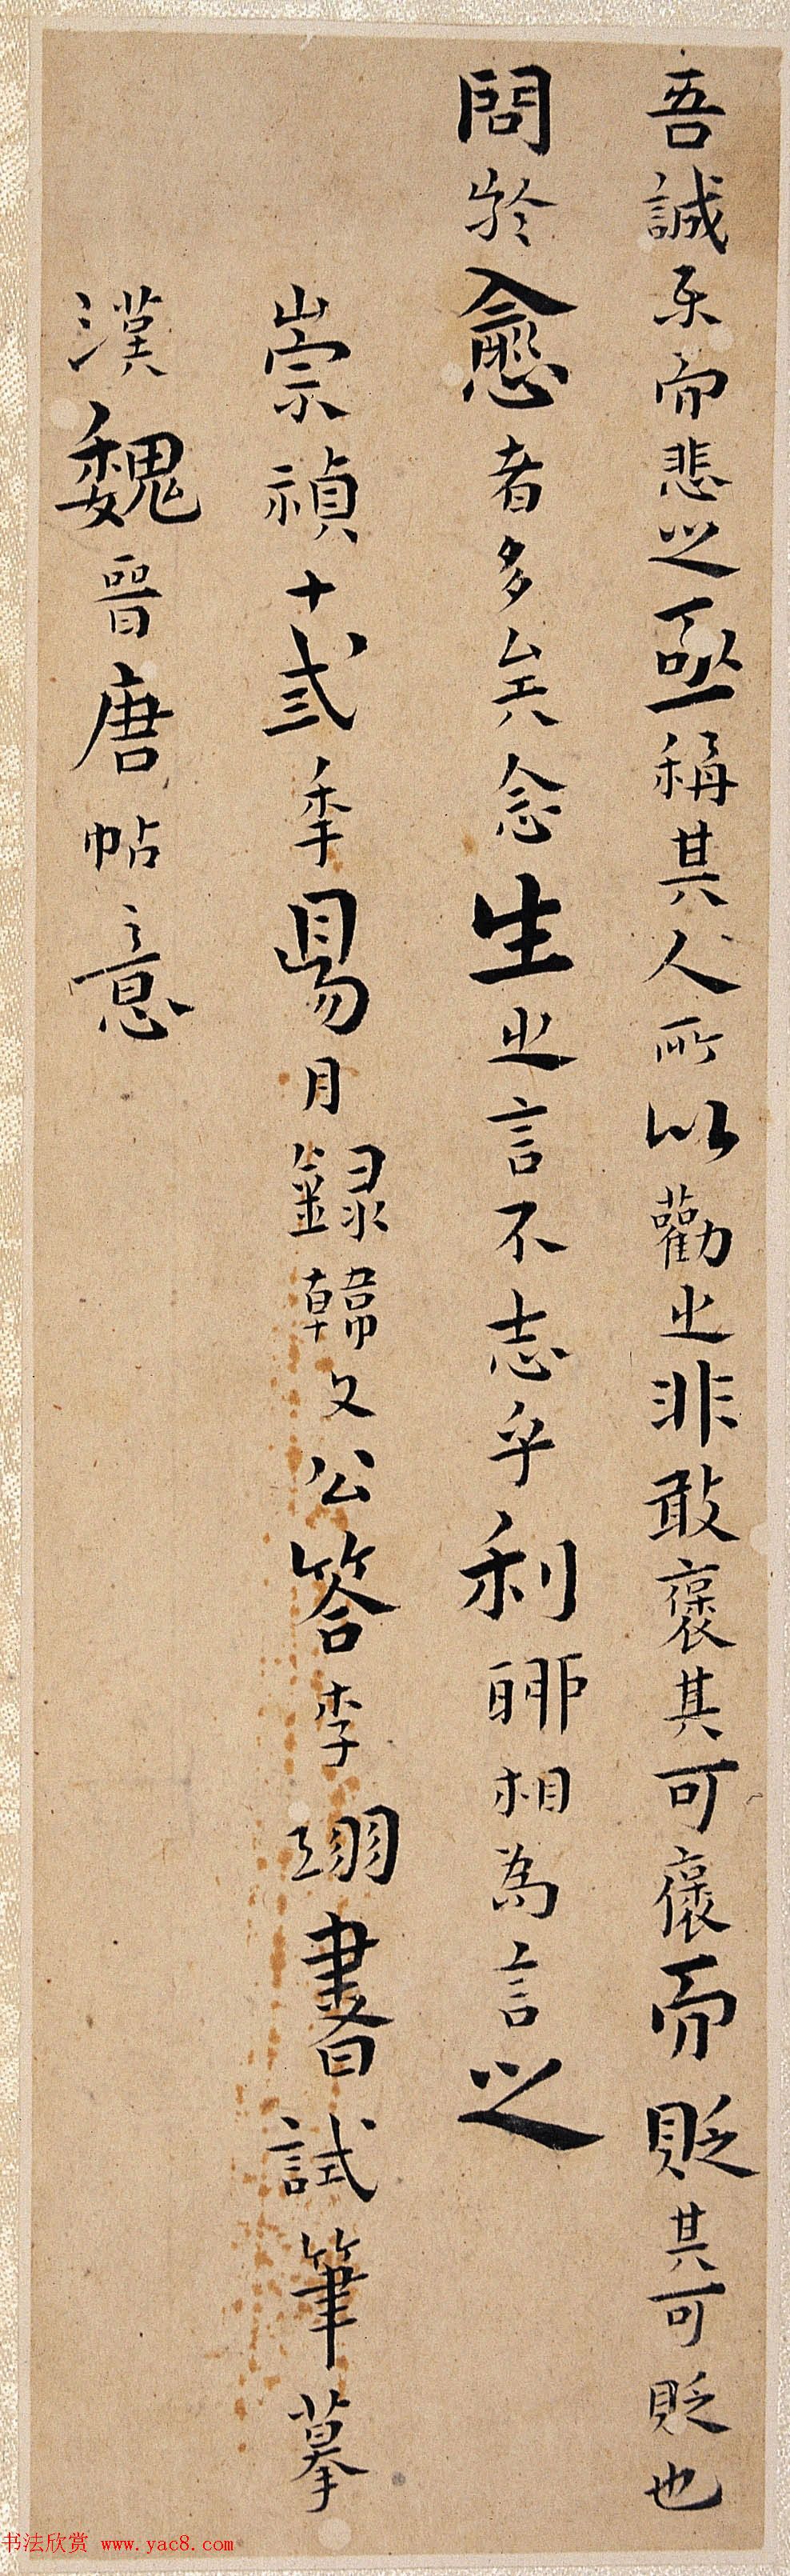 吾誠樂而悲之亟稱其人所以勸之非敢褒其可褒而貶其可貶也
問於愈者多矣念生之言不志乎利聊相為言之
崇禎十弍年昜月錄韓文公答李翊書試筆摹
漢魏晉唐帖意
书法欣赏 www.yac8.com